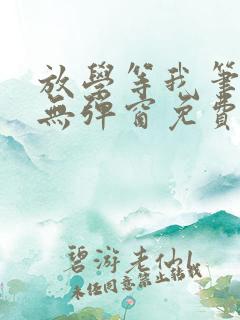 放學等我筆
無彈窗免費
碧游老仙
未經同意禁止轉載